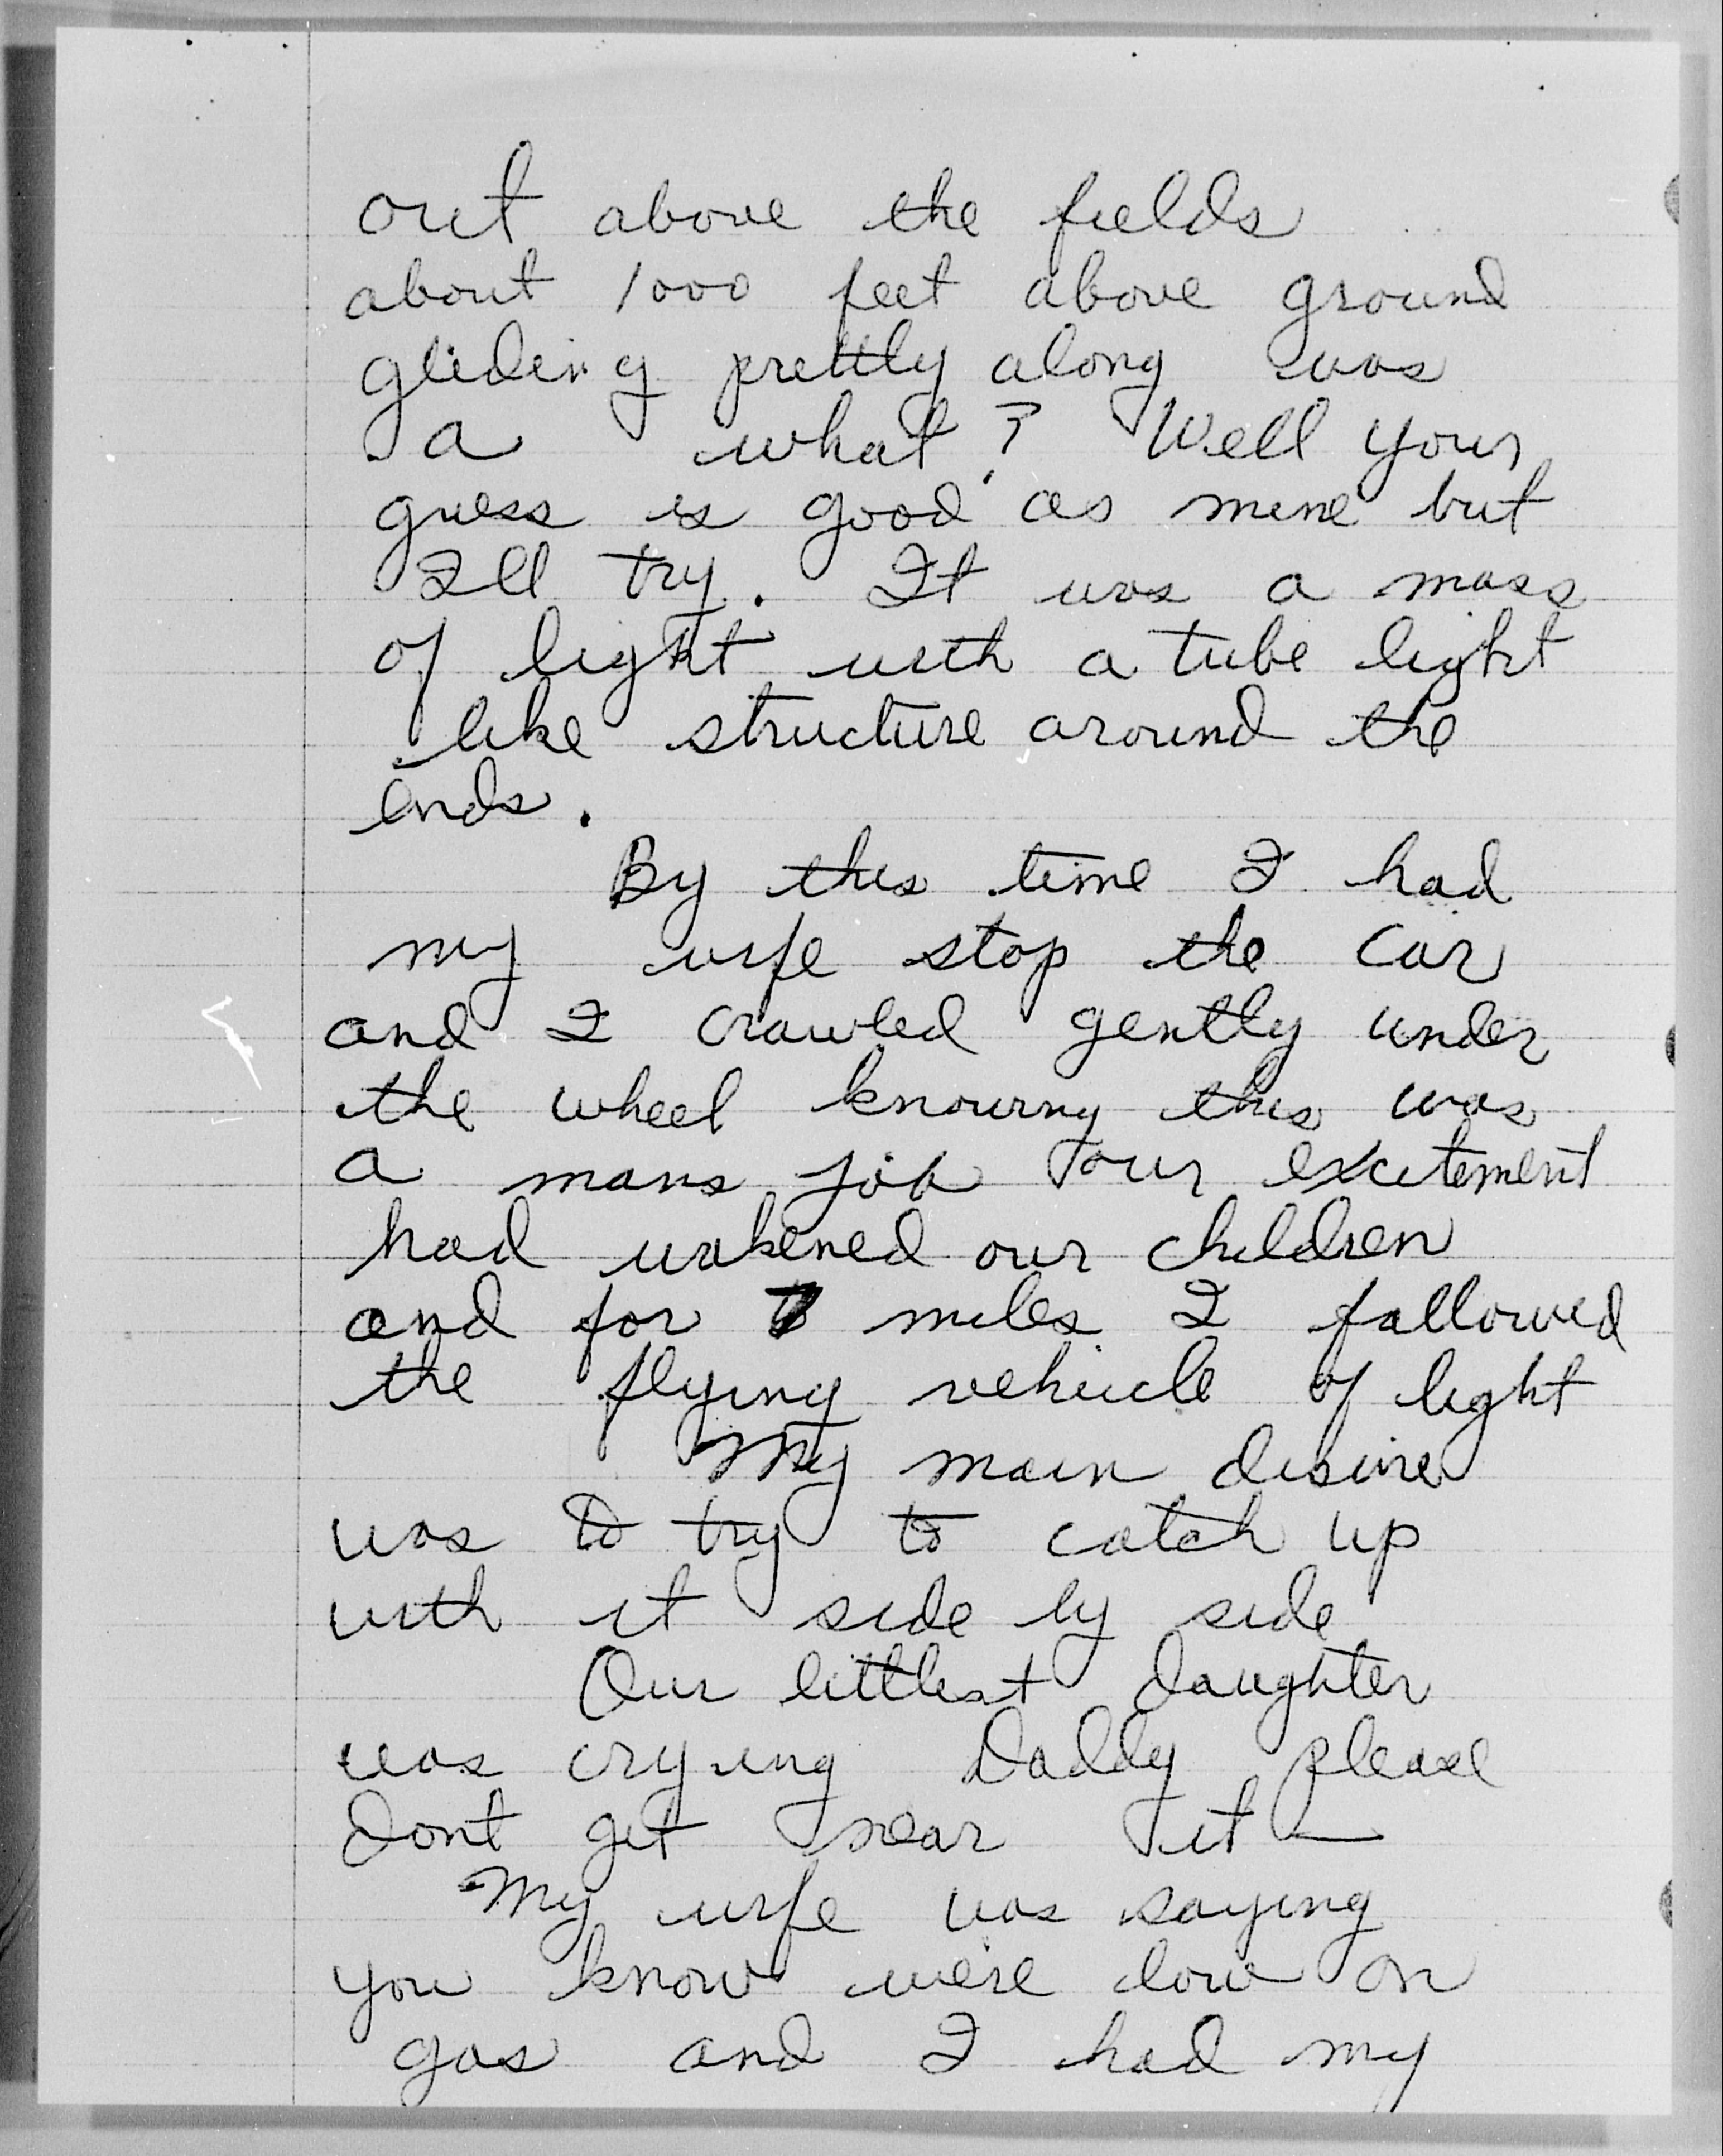 out above the fields
about 1000 feet above ground
gliding prettly along was
a what? Well your
guess is good as mine but
Ill try. It was a mass
of light with a tube light
like structure around the
ends.
By this time I had
my wife stop the car
and I crawled gently under
the wheel knowing this was
a mans job our excitement
had wakened our children
and for 7 miles I followed
the flying vehicle of light
My main desire
was to try to catch up
with it side by side
Our littlest daughter
was crying Daddy please
dont get near it —
My wife was saying
you know we're low on
gas and I had my